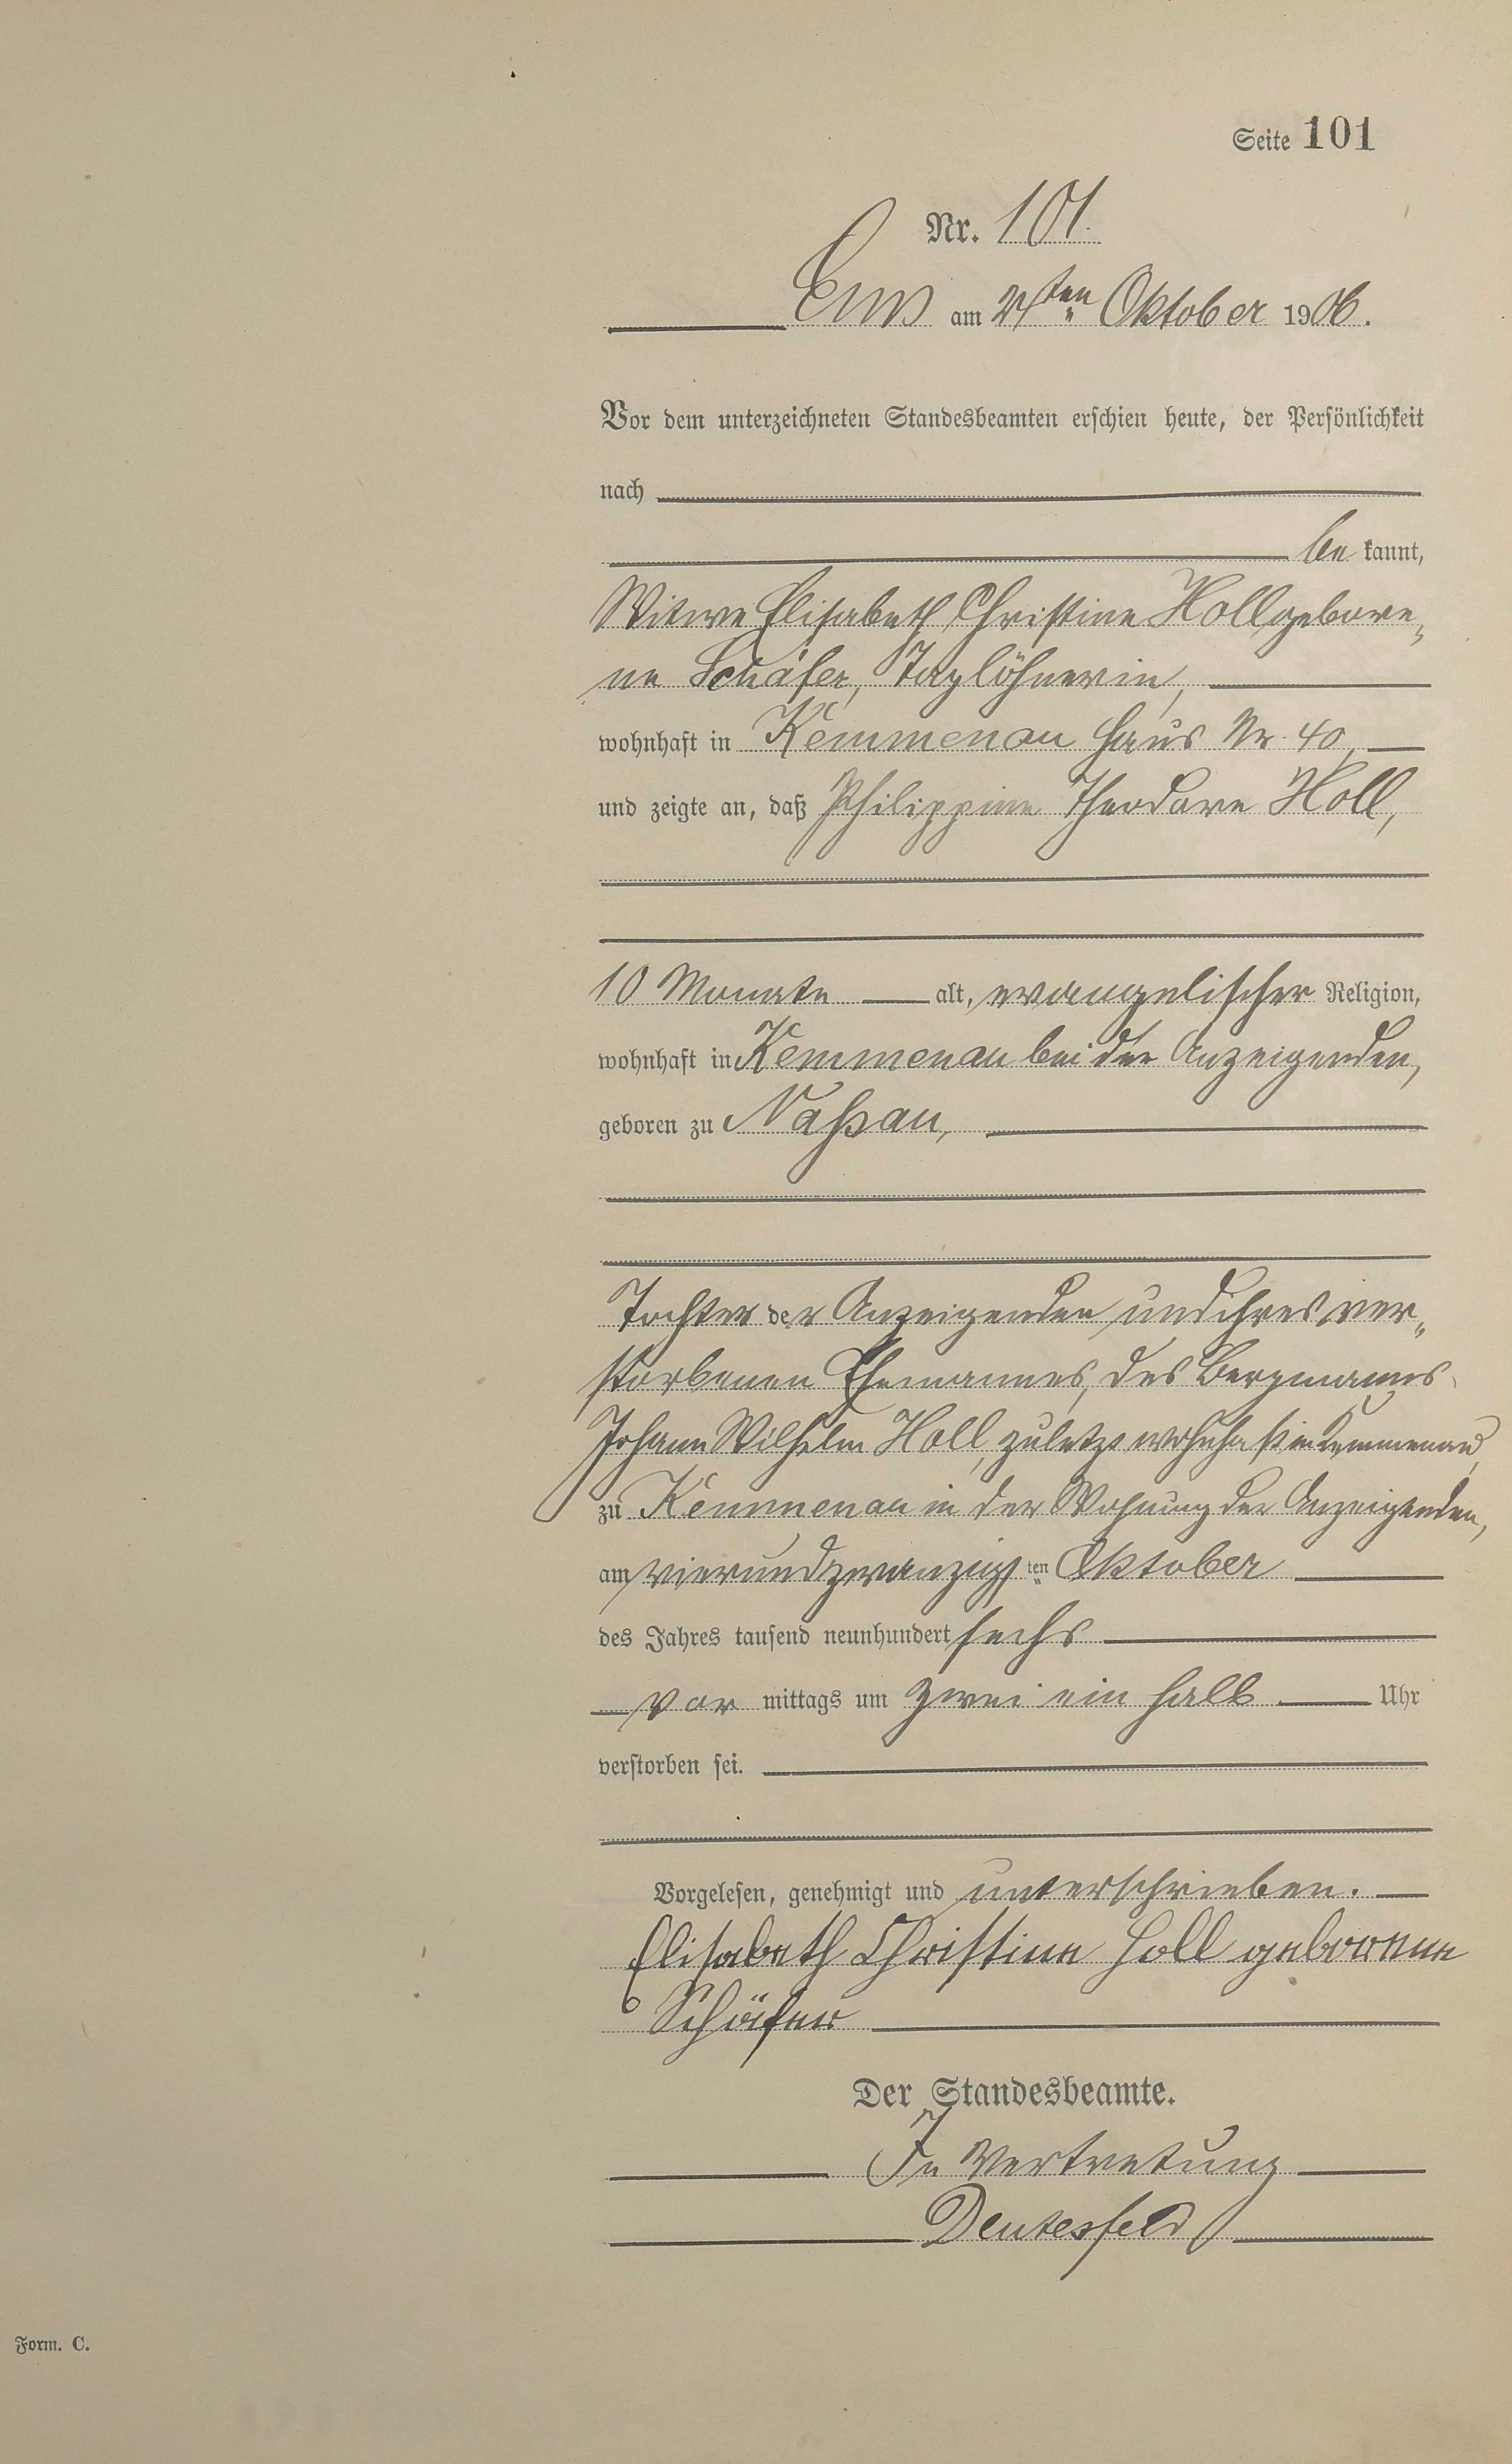 Seite 101
Nr. 101.
Ems am 24ten Oktober 1906.
Vor dem unterzeichneten Standesbeamten erschien heute, der Persönlichkeit
nach
be kannt,
Witwe Elisabeth Christine Holl gebore„
ne Schäfer, Taglöhnerin,
wohnhaft in Kemmenau Haus Nr. 40,
und zeigte an, daß Philippine Theodore Holl,
10 Monate alt, evangelischer Religion,
wohnhaft in Kemmenau bei der Anzeigenden,
geboren zu Naßau,
Tochter der Anzeigenden und ihres ver„
storbenen Ehemannes, des Bergmanns
Johann Wilhelm Holl, zuletzt wohnhaft in Kemmenau,
zu Kemmenau in der Wohnung der Anzeigenden,
am vierundzwanzigsten Oktober
des Jahres tausend neunhundert sechs
vor mittags um zwei ein halb Uhr
verstorben sei.
Vorgelesen, genehmigt und unterschrieben.
Elisabeth Christine Holl geborene
Schäfer
Der Standesbeamte.
In Vertretung
Deutesfeld
Form. C.